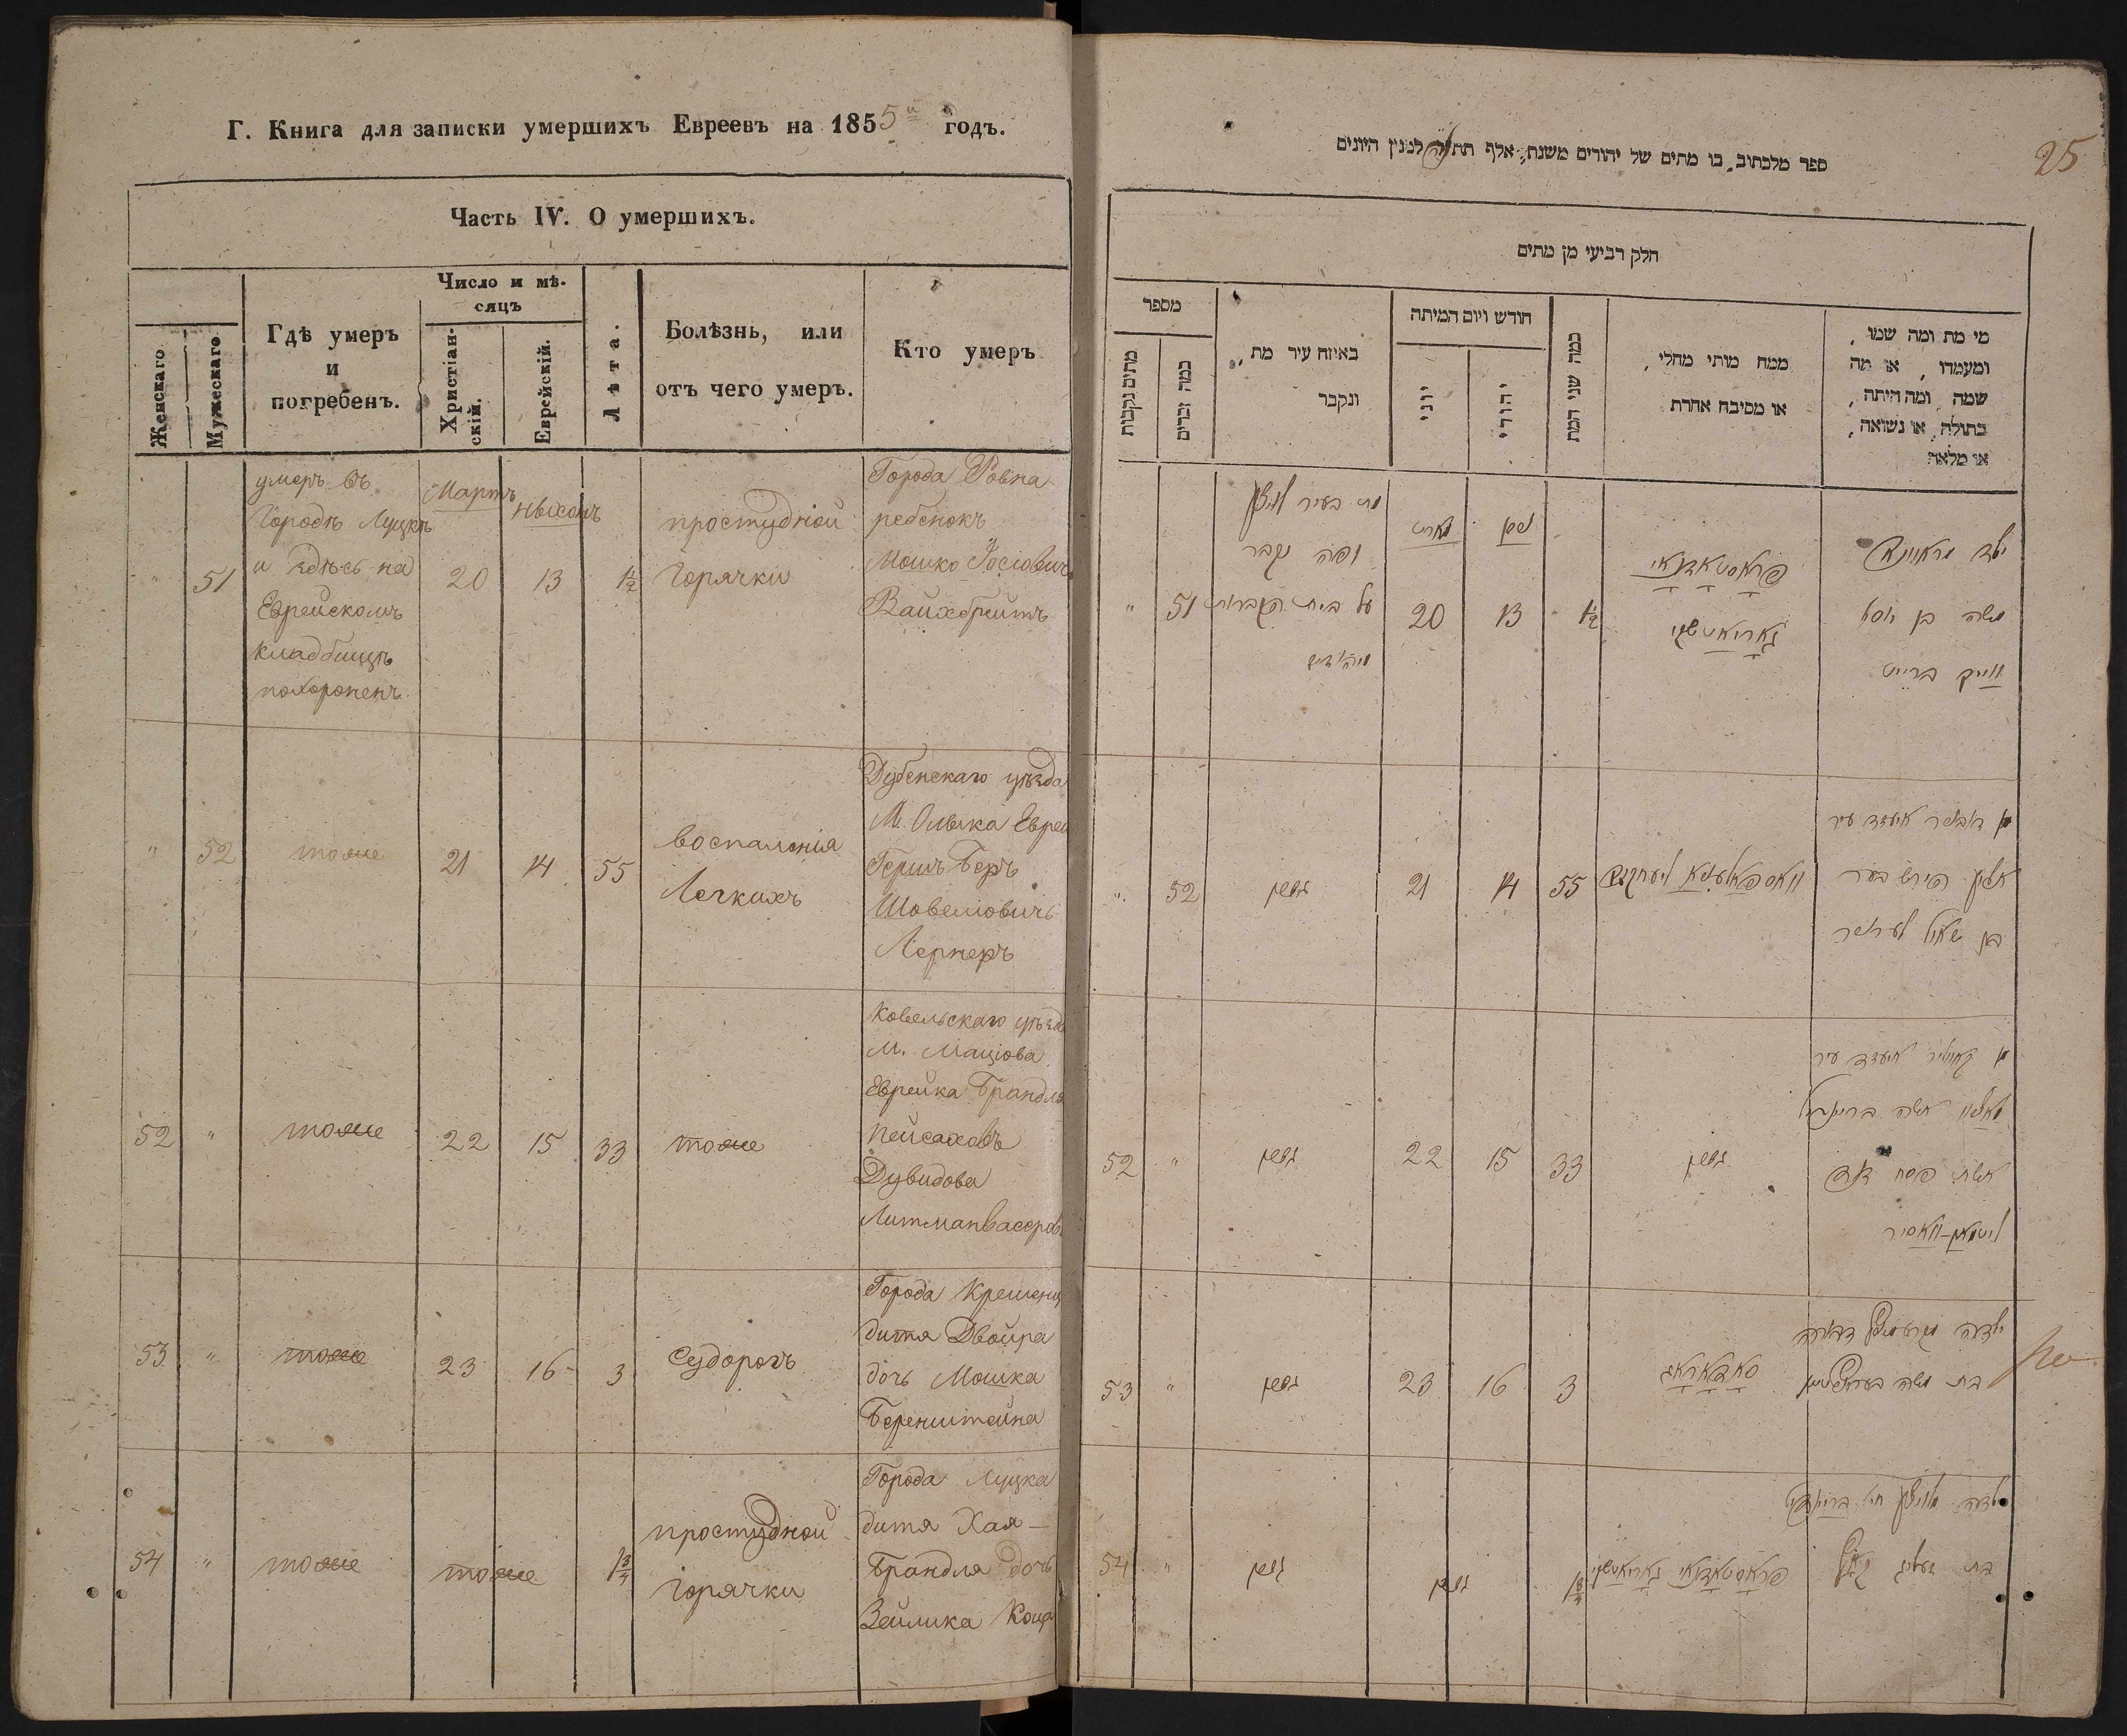 Г. Книга для записки умершихъ Евреевъ на 1855й годъ.
Часть IV. О умершихъ.
Женскаго
Мужескаго
Гдѣ умеръ
и
погребенъ.
Число и мѣ-
сяцъ
Христіан-
скій.
Еврейскій.
Лѣта.
Болѣзнь, или
отъ чего умеръ.
Кто умеръ
"
51
умеръ въ
Городѣ Луцкѣ
и здѣсь на
Еврейскомъ
кладбищѣ
похороненъ
Мартъ
20
Нысонъ
13
1½
простудной
Горячки
Города Ровна
ребенокъ
Мошко Іосіовичъ
Вайхбрейтъ
"
52
тоже
21
14
55
воспаленія
Легкихъ
Дубенскаго уѣзда
М. Олыка Еврей
Гершъ Беръ
Шовеліовичъ
Лернеръ
52
"
тоже
22
15
33
тоже
Ковельскаго уѣзда
М. Маціова
Еврейка Брандля
Пейсаховъ
Дувидова
Литманвасеров
53
"
тоже
23
16
3
Судорогъ
Города Кременц
дитя Двойра
дочь Мошка
Беренштейна
54
"
тоже
тоже
1¾
простудной
горячки
Города Луцка
дитя Хая-
Брандля дочь
Зейлика Коца
25
ספר מלכתוב בו מתים של יהודים משנת אלף תת למנין היונים
חלק רביעי מן מתים
מספר
מתים נקבות
כמה זכרים
באיזה עיר מת,
ונקבר
חודש ויום המיתה
יוני
יהודי
כמה שני המת
ממה מותי מחלי,
או מסיבה אחרת
מי מת ומה שמו,
ומעמדו, או מה
שמה ומה היתה,
בתולה, או נשואה,
או מלאה
"
51
מת בעיר לוצק
ופה נקבר
על בית הקברות
מארט
20
ניסן
13
1½
פראסטאדנאי
גאריאטשקי
ילד מראוונא
משה בן יוסל
ווייך ברייט
"
52
21
14
55
הירש בער
בן שאול לערנר
52
"
22
15
33
אשה בריינדל
אשת פסח דוד
ליטמאן-וואסיר
53
"
23
16
3
סאדאראג
בת משה בערנשטיין
54
"
1¾
פראסטאדנאי גאריאטשקי
ילדה מלוצק חי' בריינדל
בת זעליג קאץ